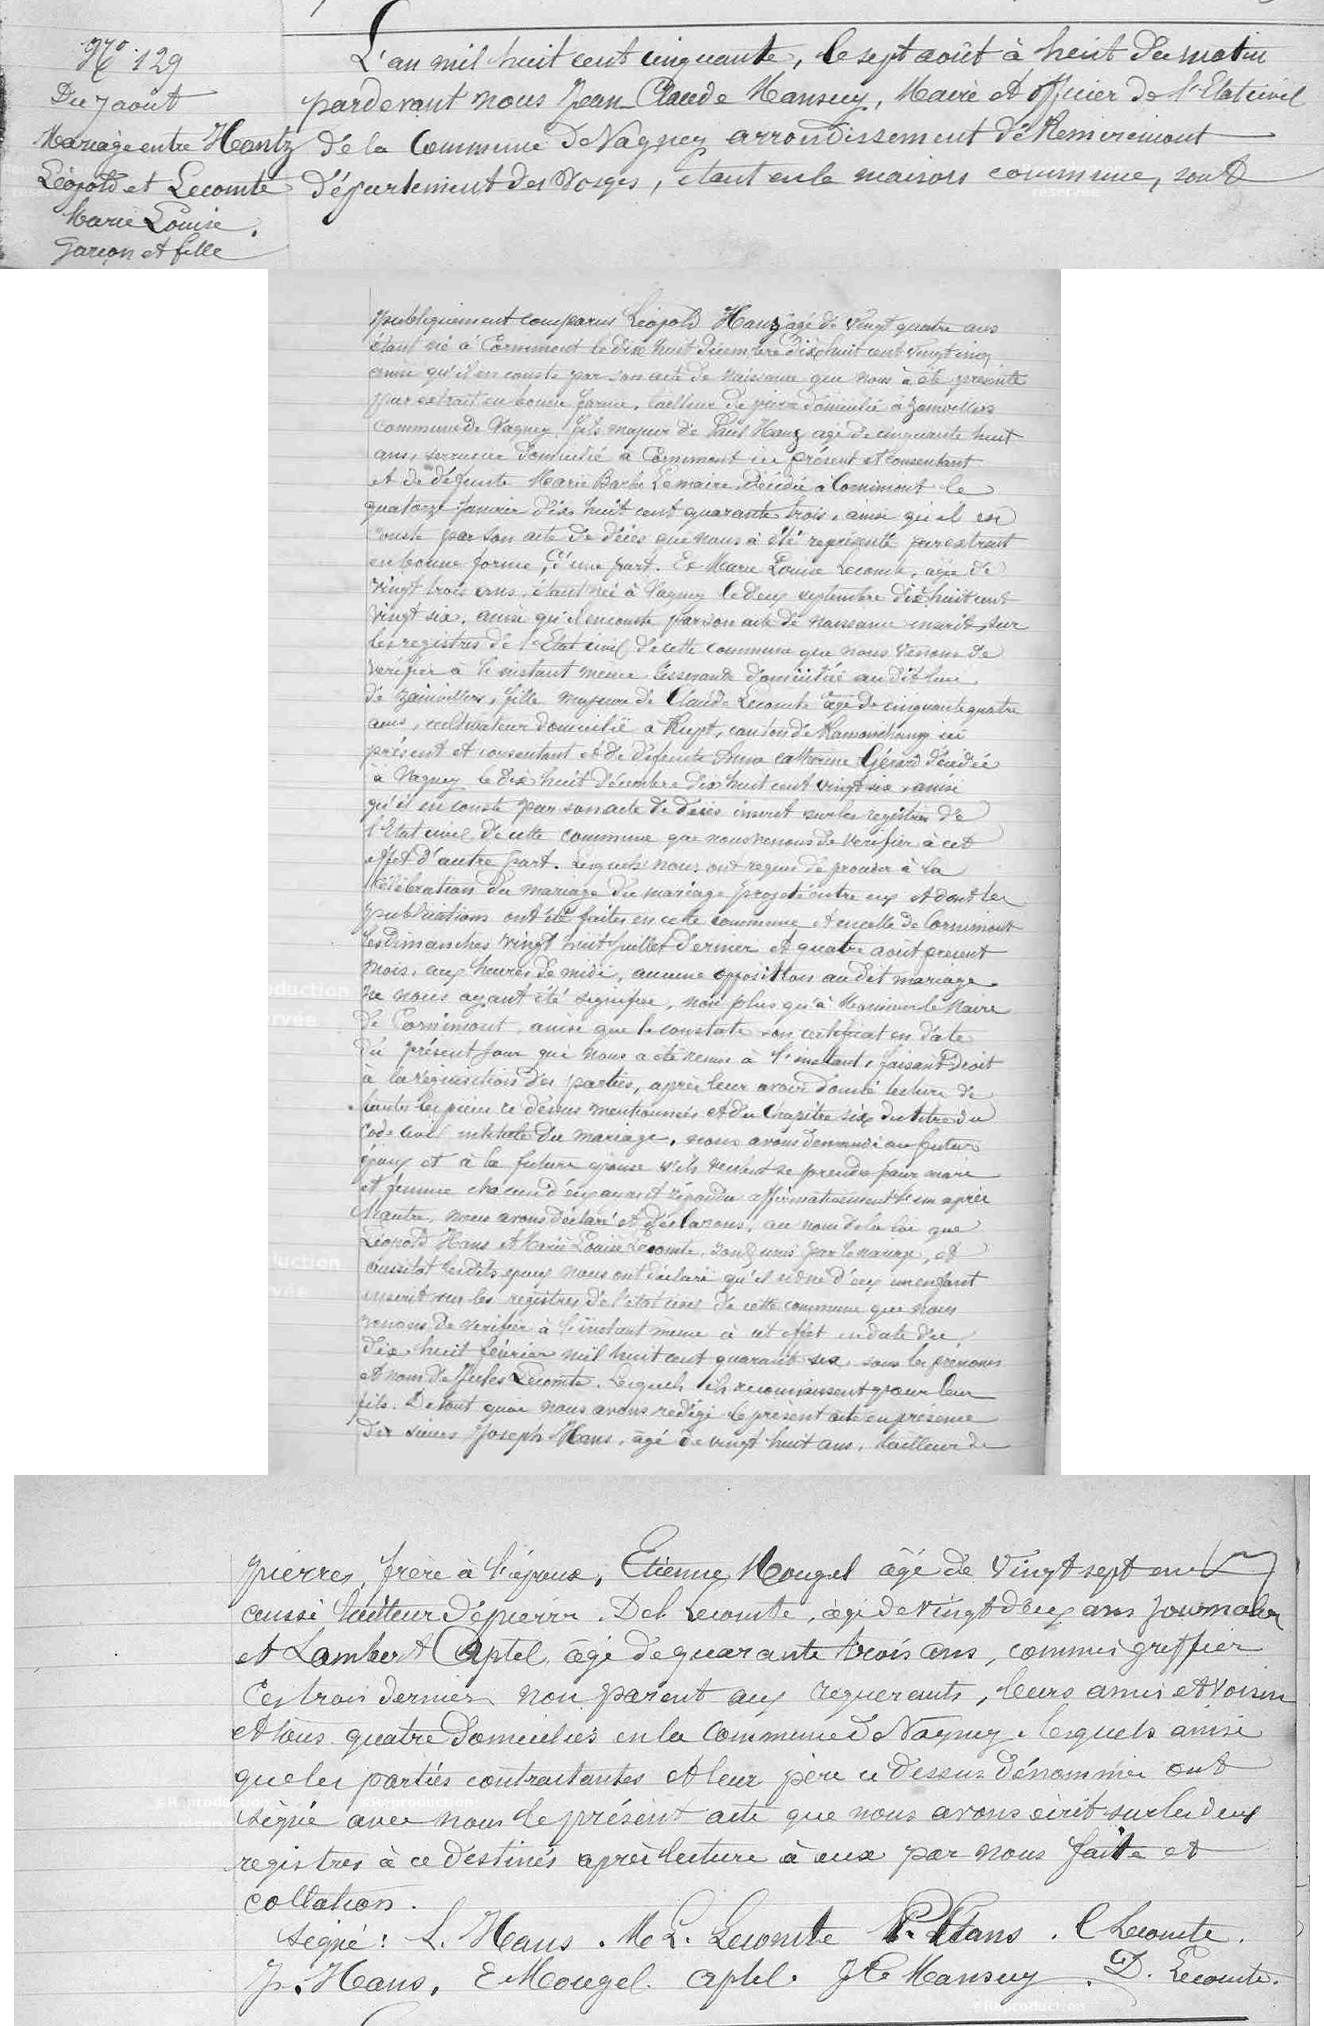 No. 129
Du 7 août
Mariage entre Hantz
Léopold et Lecomte
Marie Louise.
garçon et fille
L'an mil huit cent cinquante, le sept août à huit du matin
pardevant nous Jean Claude Mansuy, Maire et officier de l'Etat civil
de la Commune de Vagney arrondissement de Remiremont
département des Vosges, étant en la maison commune, sont
publiquement comparus Léopold Hanz âgé de vingt quatre ans
étant né à Cornimont le dix huit décembre dix huit cent vingt cinq
ainsi qu'il en conste par son acte de naissance que nous a été présenté
par extrait en bonne forme, tailleur de pierre domicilié à Zainvillers
commune de Vagney, fils majeur de Paul Hanz âgé de cinquante huit
ans, serrurier domicilié à Cornimont ici présent et consentant
et de défunte Marie Barbe Lemaire décédée à Cornimont le
quatorze janvier dix huit cent quarante trois, ainsi qu'il en
conste par son acte de décès que nous a été représenté par extrait
en bonne forme, d'une part. Et Marie Louise Lecomte, âgée de
vingt trois ans, étant née à Vagney le deux septembre dix huit cent
vingt six, ainsi qu'il en conste par son acte de naissance inscrit sur
les registres de l'Etat civil de cette commune que nous venons de
vérifier à l'instant même tisserande domiciliée au dit lieu
de Zainvillers, fille majeure de Claude Lecomte âgé de cinquante quatre
ans, cultivateur domicilié à Rupt, canton de Ramonchamp ici
présent et consentant et de défunte Anne Catherine Gérard décédée
à Vagney le dix huit décembre dix huit cent vingt six, ainsi
qu'il en conste par son acte de décès inscrit sur les registres de
l'Etat civil de cette commune que nous venons de vérifier à cet
effet d'autre part. Lesquels nous ont requis de procéder à la
célébration du mariage du mariage projeté entre eux et dont les
publications ont été faites en cette commune et en celle de Cornimont
les dimanches vingt huit juillet dernier et quatre août présent
mois, aux heures de midi, aucune opposition au dit mariage
ne nous ayant été signifiée, non plus qu'à Monsieur le Maire
de Cornimont ainsi que le constate son certificat en date
du présent jour qui nous a été remis à l'instant, faisant droit
à la réquisition des parties, après leur avoir donné lecture de
toutes les pièces ci dessus mentionnées et du Chapitre six du titre du
Code civil intitulé du mariage, nous avons demandé au futur
époux et à la future épouse s'ils veulent se prendre pour mari
et femme chacun d'eux ayant répondu affirmativement l'un après
l'autre, nous avons déclaré et déclarons, au nom de la loi que
Léopold Hans et Marie Louise Lecomte, sont unis par le mariage, et
aussitôt lesdits époux nous ont déclaré qu'il est né d'eux un enfant
inscrit sur les registres de l'état civil de cette commune que nous
venons de vérifier à l'instant même à cet effet en date du
dix huit février mil huit cent quarante six sous les prénoms
et nom de Jules Lecomte. Lequel ils reconnaissent pour leur
fils. De tout quoi nous avons rédigé le présent acte en présence
des sieurs Joseph Hans, âgé de vingt huit ans, tailleur de
pierres, frère à l'époux, Etienne Mougel âgé de vingt sept ans
aussi tailleur de pierre. Del Lecomte, âgé de vingt deux ans journalier
et Lambert Aptel âgé de quarante trois ans, commis greffier
Ces trois derniers non parent aux requérants, leurs amis et voisin
et tous quatre domiciliés en la commune de Vagney. lesquels ainsi
que les parties contractantes et leur père ci dessus dénommés ont
signé avec nous le présent acte que nous avons écrit sur les deux
registres à ce destinés après lecture à eux par nous faite et
collation.
Signé: L. Hans. M L. Lecomte P. Hans. C Lecomte.
J. Hans, E Mougel. Aptel. J C Mansuy. D. Lecomte.